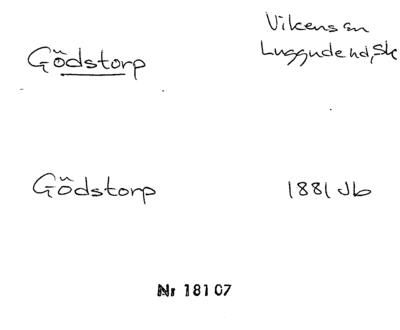 Gödstorp
Vikens sn
Luggude hd, Sk
Gödstorp
1881 Jb
Nr 18107